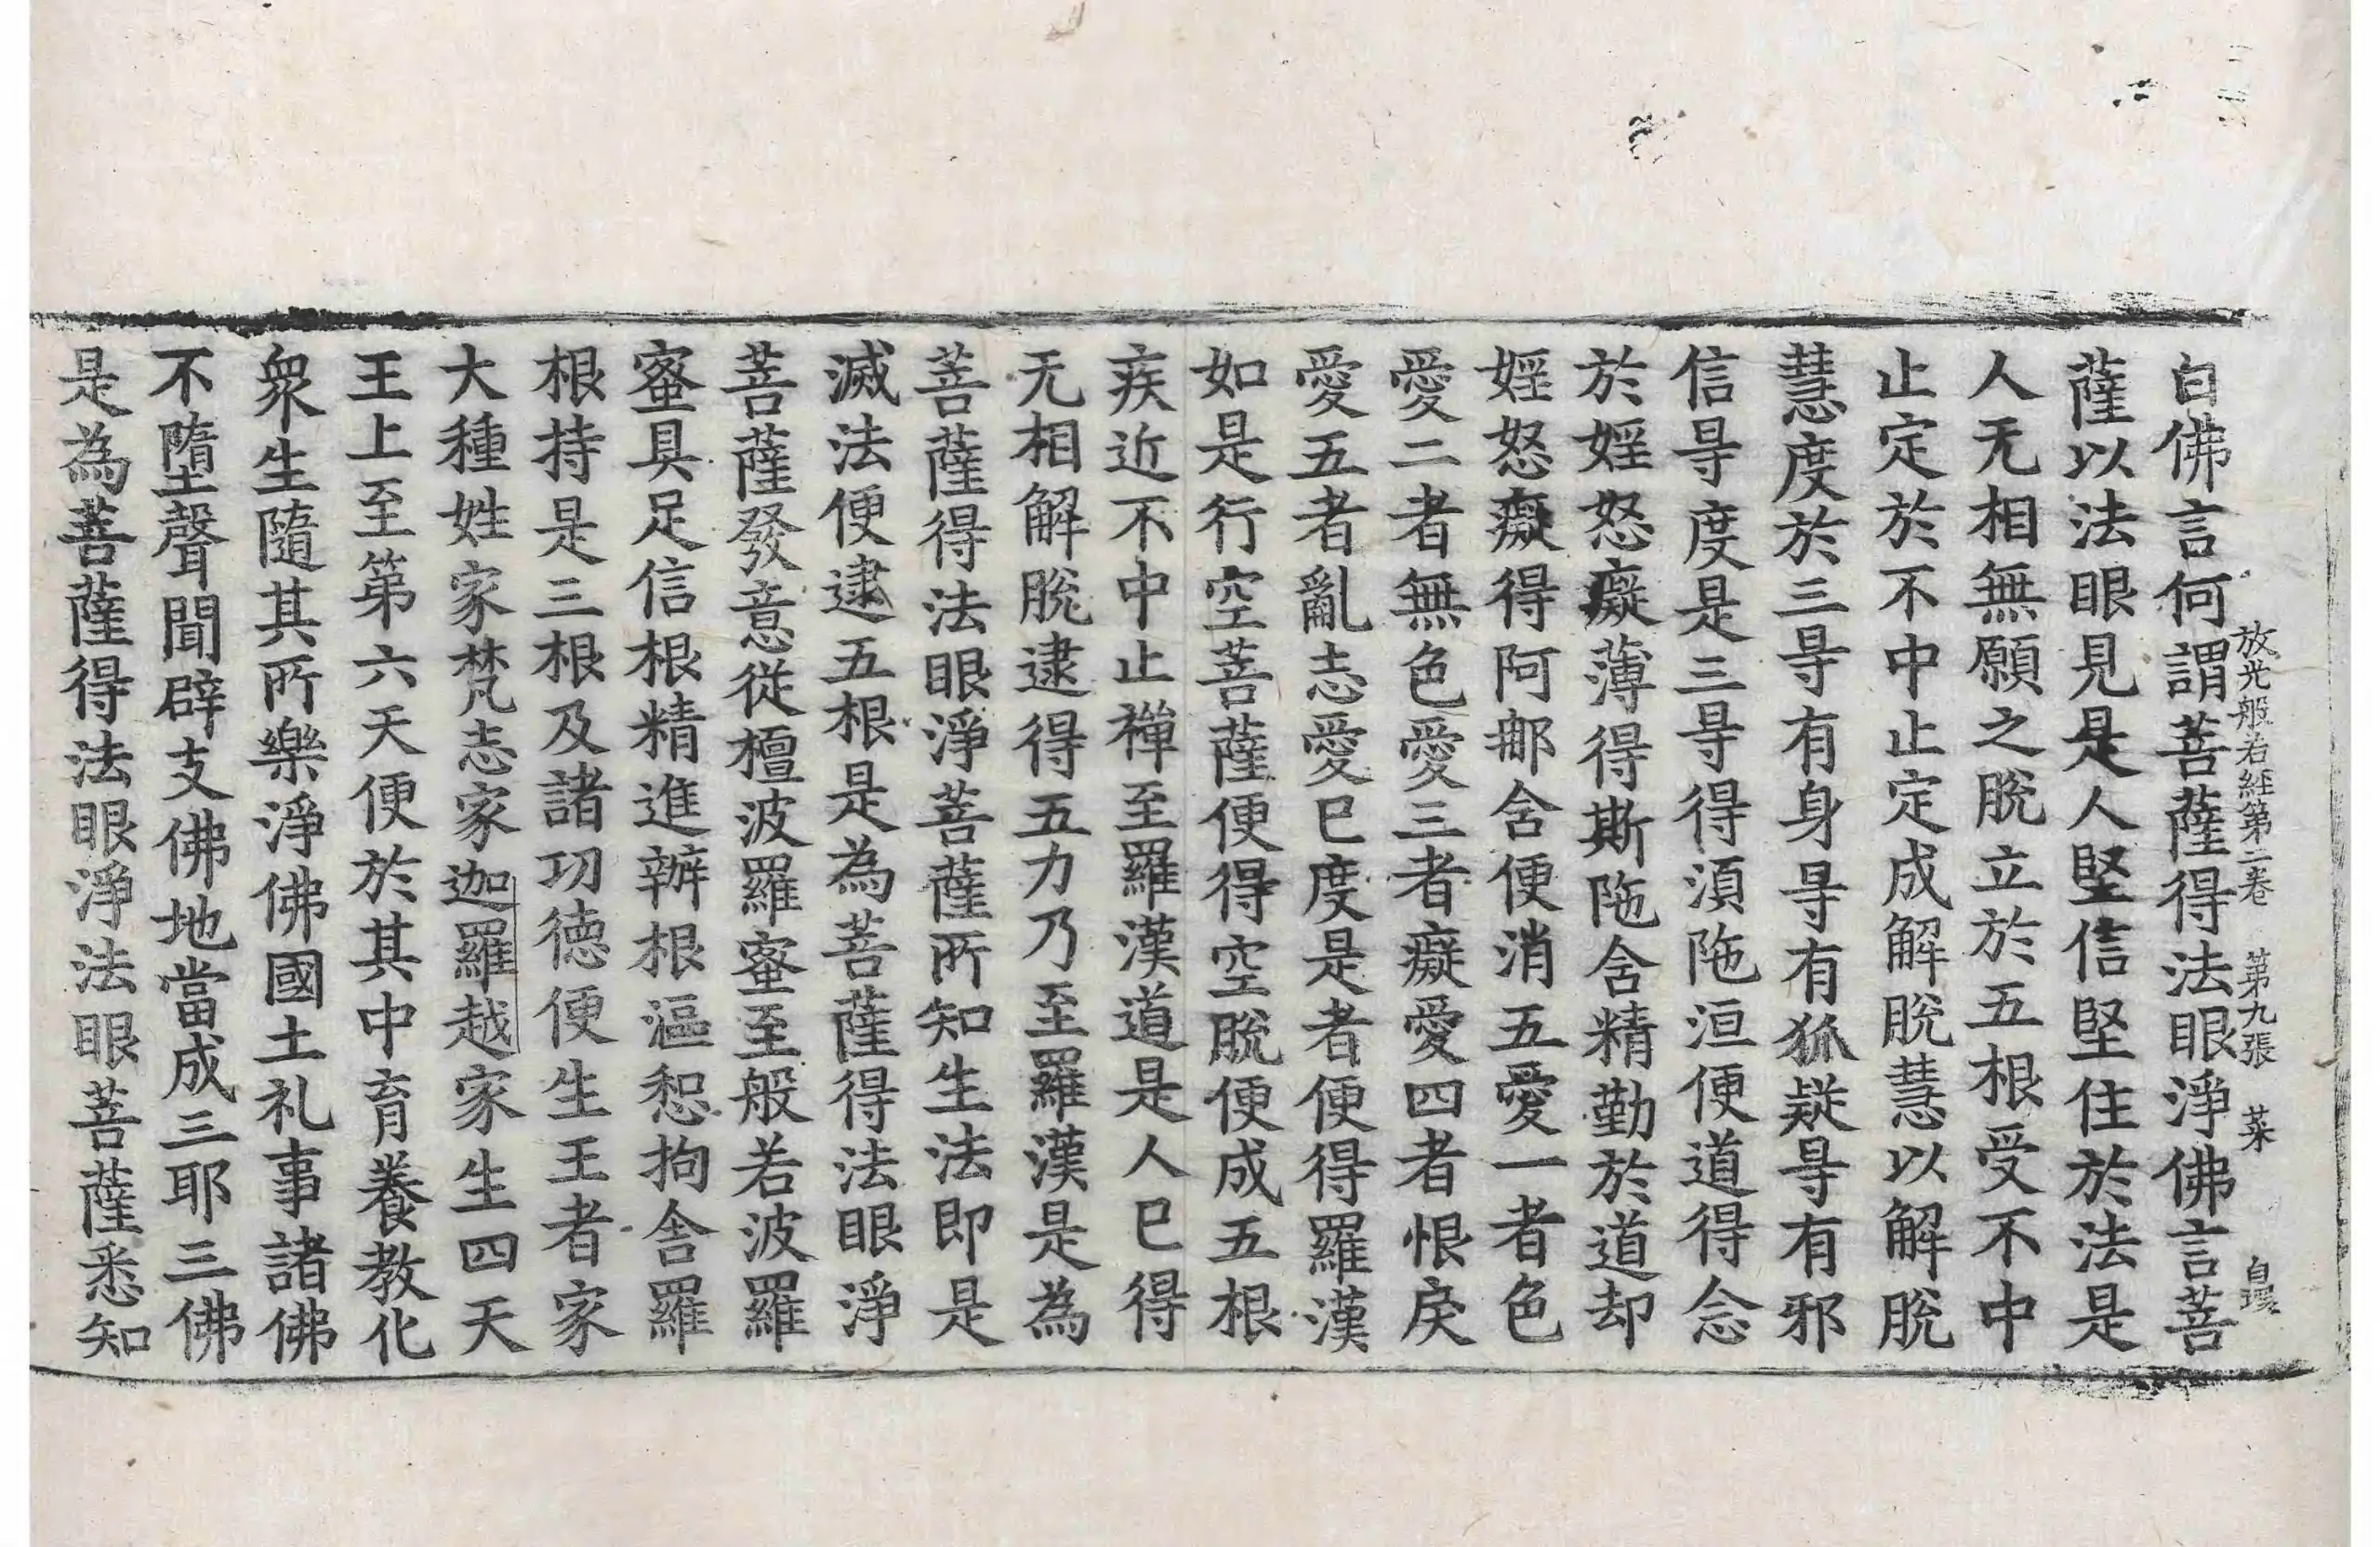 放光般若經第二卷 第九張 菜
白佛言何謂菩薩得法眼淨佛言菩
薩以法眼見是人堅信堅住於法是
人无相無願之脫立於五根受不中
止定於不中止定成解脫慧以解脫
慧度於三㝵有身㝵有狐疑㝵有邪
信㝵度是三㝵得湏陁洹便道得念
於婬怒癡薄得斯陁含精勤於道却
婬怒癡得阿那含便消五愛一者色
愛二者無色愛三者癡愛四者恨戾
愛五者亂志愛已度是者便得羅漢
如是行空菩薩便得空脫便成五根
疾近不中止禪至羅漢道是人已得
无相解脫逮得五力乃至羅漢是為
菩薩得法眼淨菩薩所知生法即是
滅法便逮五根是為菩薩得法眼淨
菩薩發意從檀波羅蜜至般若波羅
蜜具足信根精進辦根漚惒拘舍羅
根持是三根及諸功德便生王者家
大種姓家梵志家迦羅越家生四天
王上至第六天便於其中育養教化
衆生隨其所樂淨佛國土礼事諸佛
不墮聲聞辟支佛地當成三耶三佛
是為菩薩得法眼淨法眼菩薩悉知